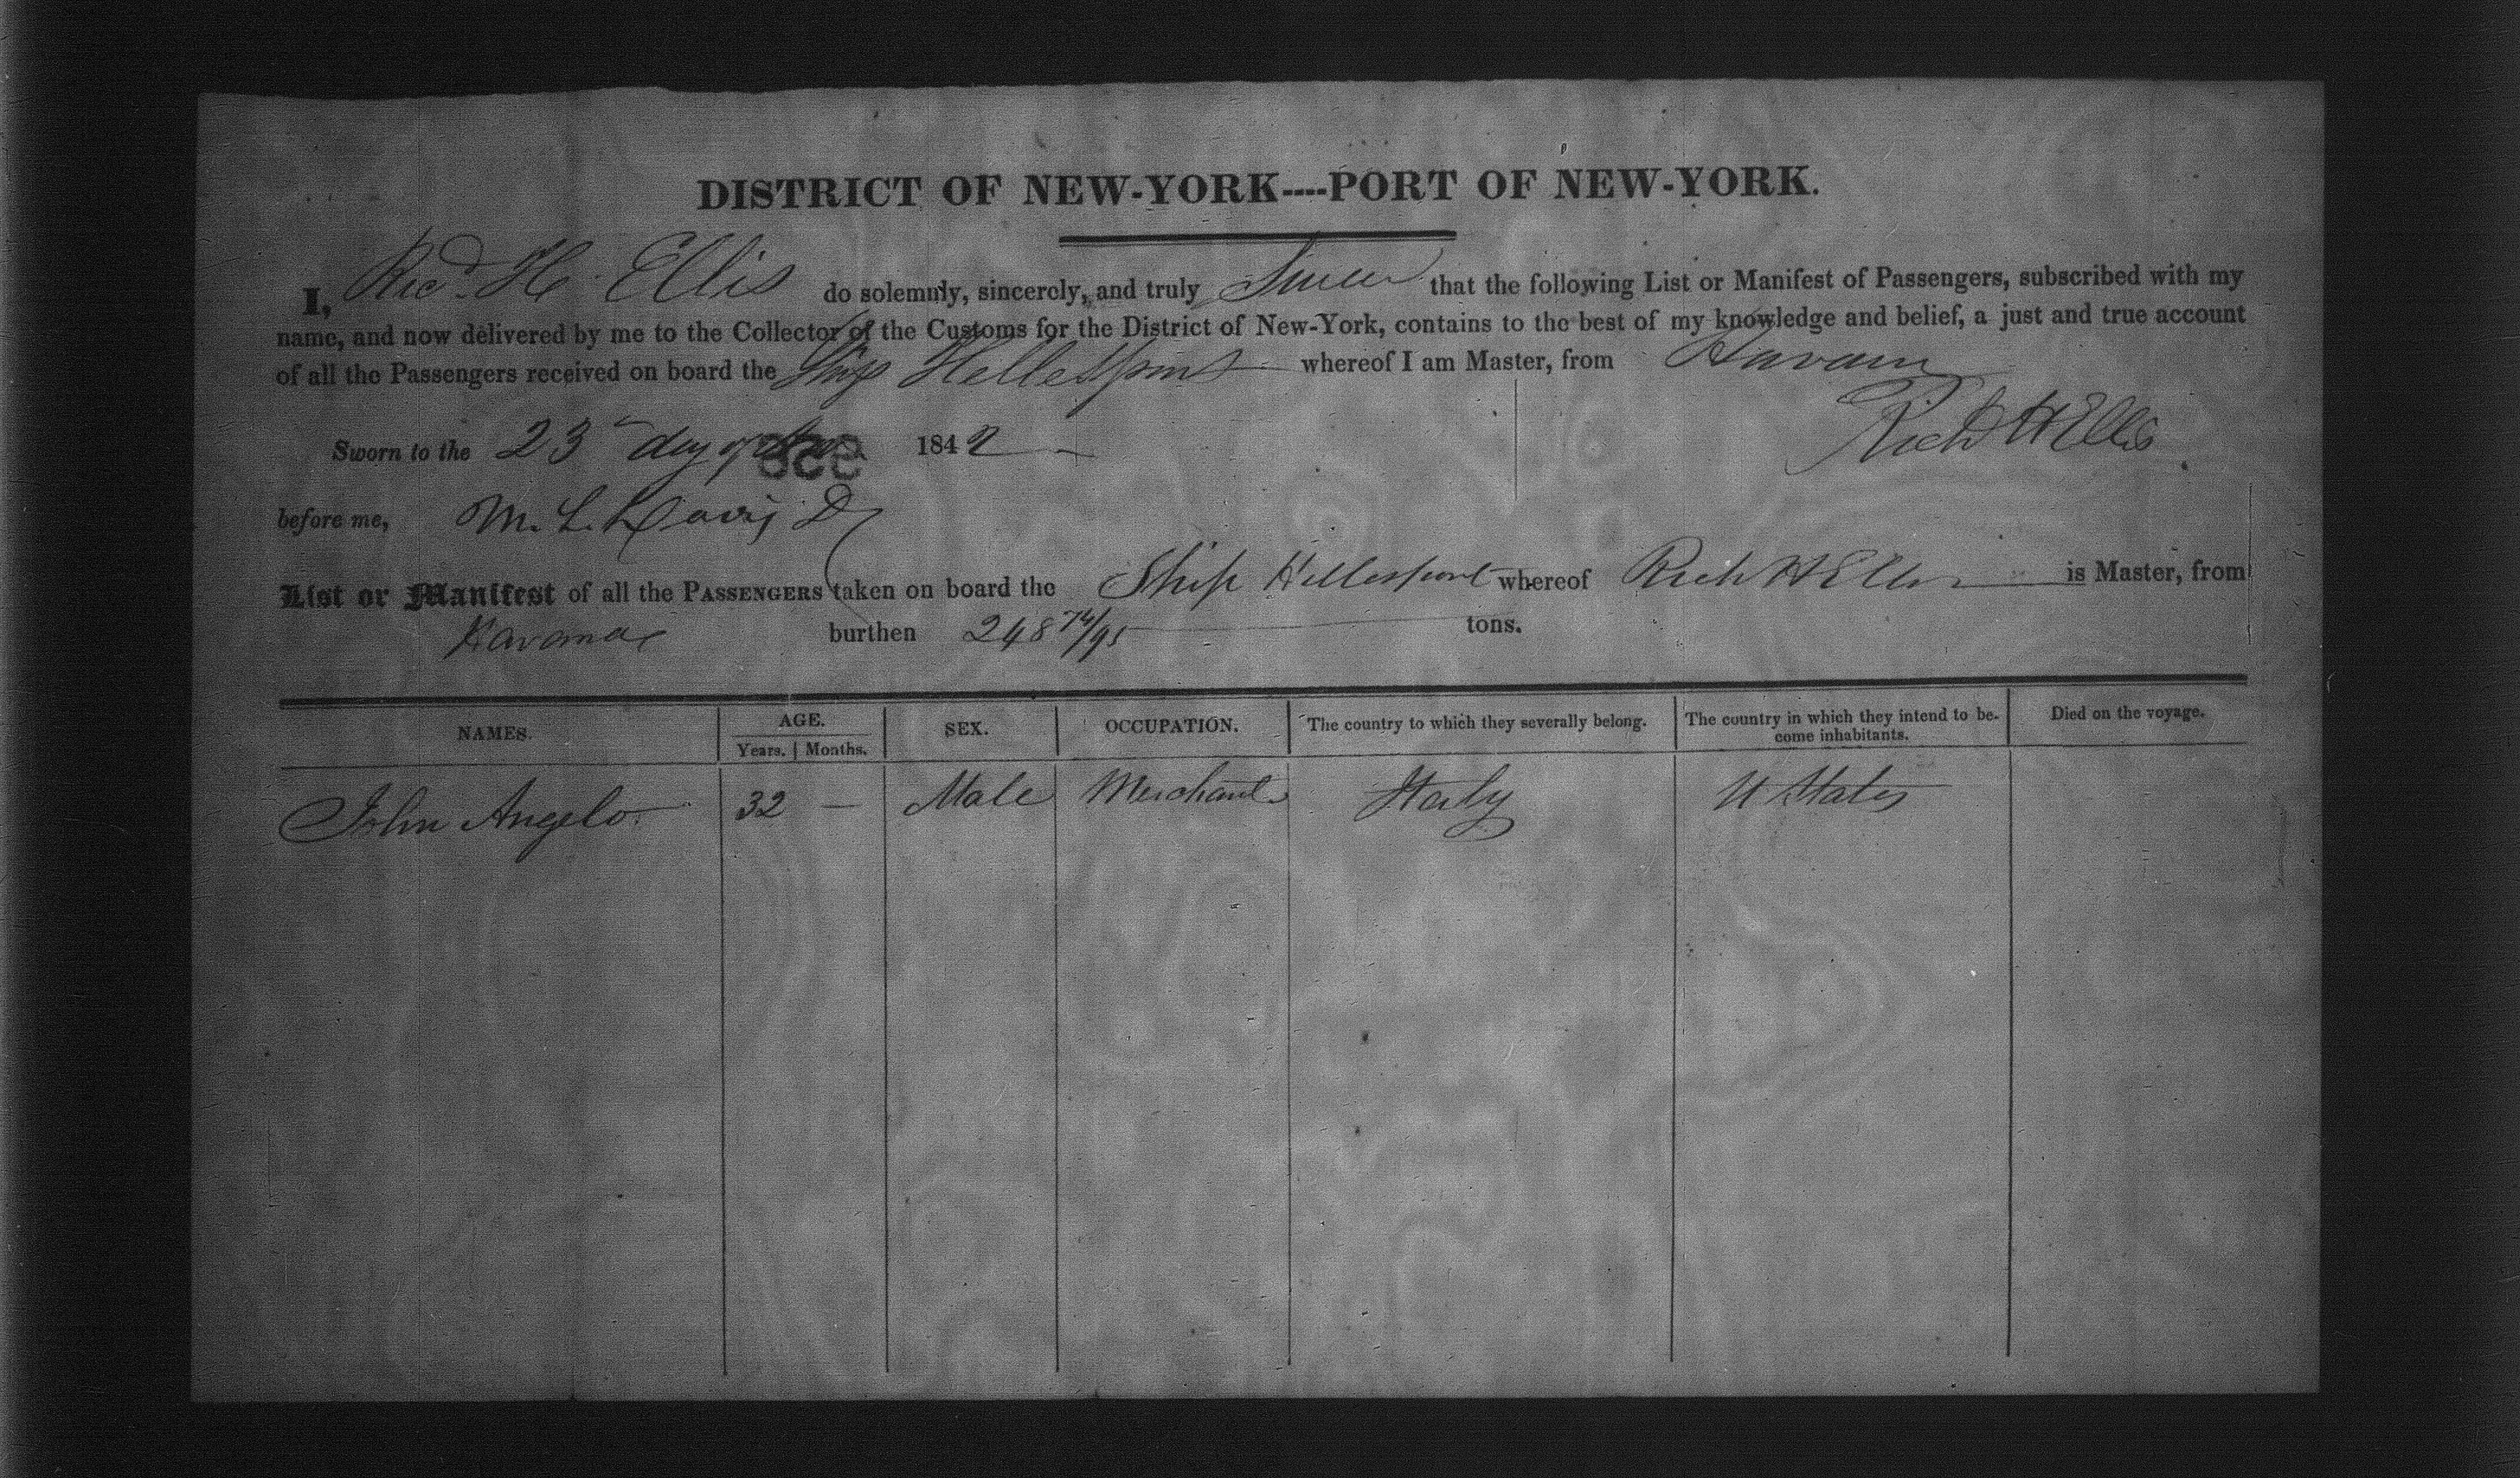 DISTRICT OF NEW-YORK----PORT OF NEW-YORK.
I, Ricd. H. Ellis do solemnly, sincerely, and truly Swear that the following List or Manifest of Passengers, subscribed with my
name, and now delivered by me to the Collector of the Customs for the District of New-York, contains to the best of my knowledge and belief, a just and true account
of all the Passengers received on board the Ship Hellespont whereof I am Master, from Havana
Richd H Ellis
Sworn to the 23 day of 1842
before me, M. L. Davis D
List or Manifest of all the PASSENGERS taken on board the Ship Hellespont whereof Rich H Ellis is Master, from
Havana burthen 248 74/95 tons.
NAMES. AGE. SEX. OCCUPATION. The country to which they severally belong. The country in which they intend to be- Died on the voyage.
Years. Months. come inhabitants.
John Angelo. 32 — Male Merchant Italy U States